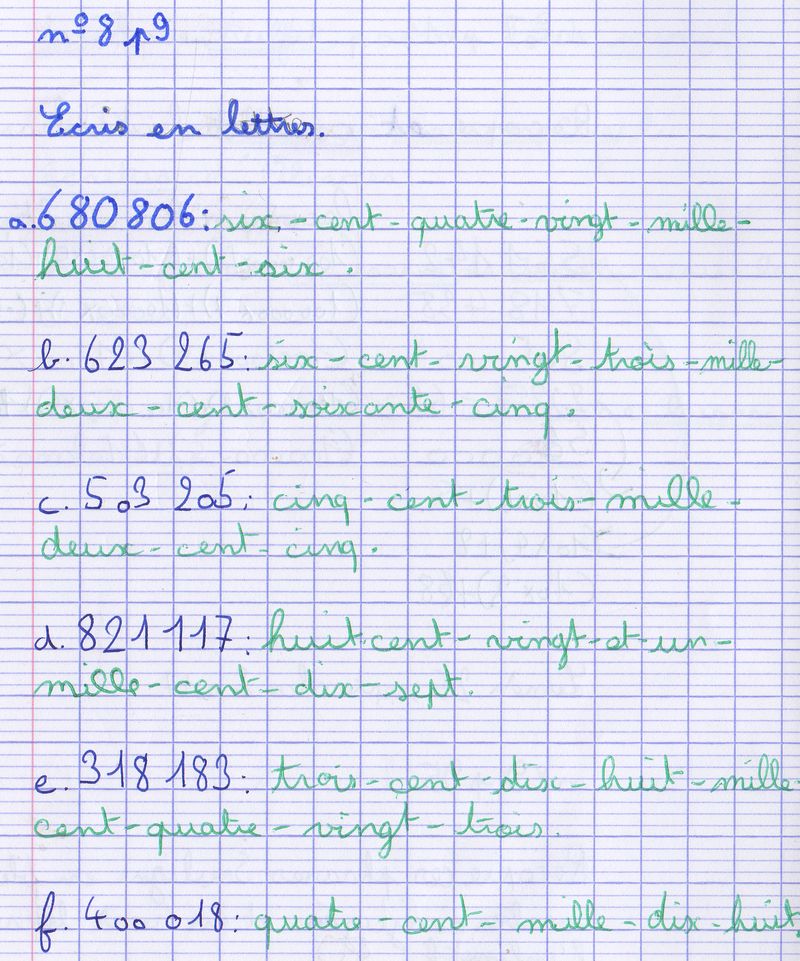 n° 8 p9
Ecris en lettres.
a. 680 806 : six-cent-quatre-vingt-mille-
huit-cent-six.
b. 623 265 : six-cent-vingt-trois-mille-
deux-cent-soixante-cinq.
c. 503 205 : cinq-cent-trois-mille-
deux-cent-cinq.
d. 821 117 : huit-cent-vingt-et-un-
mille-cent-dix-sept.
e. 318 183 : trois-cent-dix-huit-mille-
cent-quatre-vingt-trois.
f. 400 018 : quatre-cent-mille-dix-huit.